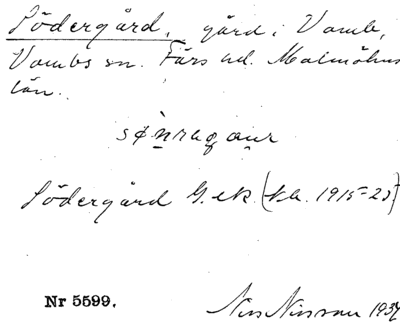 Södergård, gård i Vomb,
Vombs sn. Färs hd. Malmöhus
län.
Södergård G.ek (kh. 1915-25)
Nr 5599.
Nils Nilsson 1934